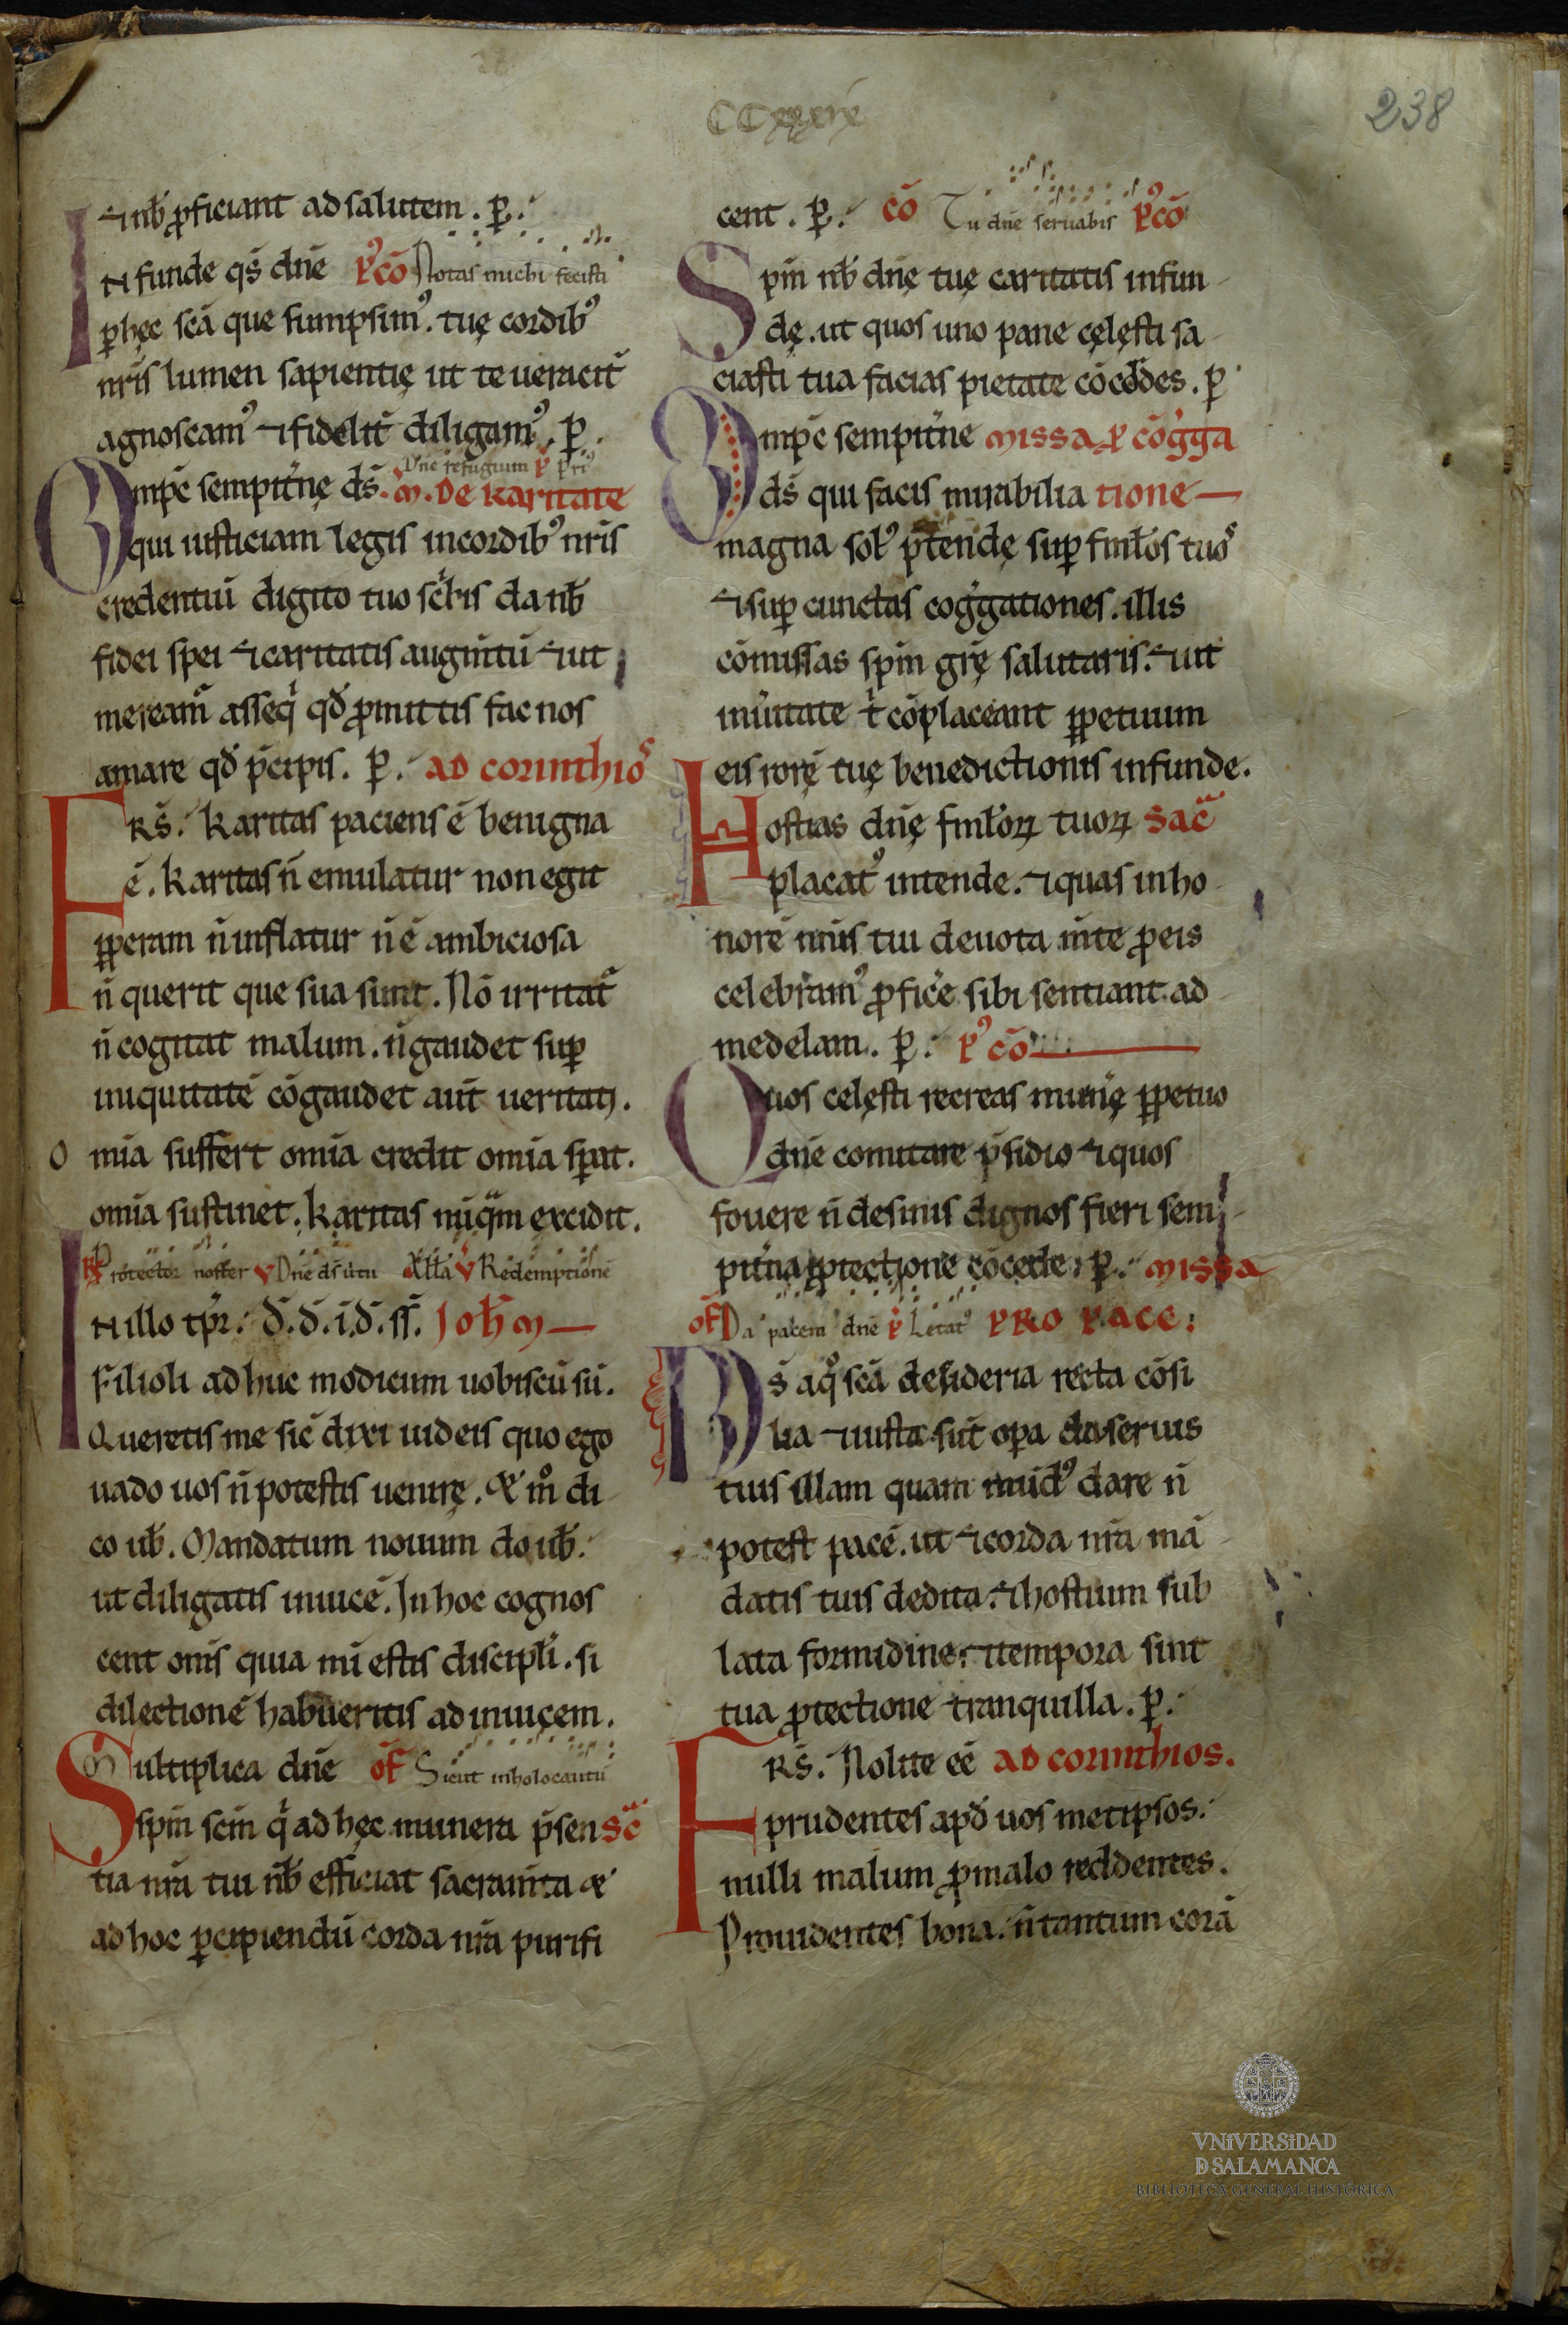 238
⁊ nb̄ ꝓficiant ad salutem. ꝑ.
Infunde q̄s dn̄e P᷒cō Notas michi fecisti
ꝑ hęc scā que sumpsim᷒. tuę cordib᷒
nr̄is lumen sapientię ut te ueracit̄
agnoscam᷒ ⁊ fidelit̄ diligam᷒. ꝑ.
Dn̄e refugium
Omp̄c sempit̄nę ds̄. M. DE KARITATE
qui iusticiam legis in cordib᷒ nr̄is
credentiū digito tuo sc̄bis da nb̄
fidei spei ⁊ caritatis augm̄tū ⁊ ut
meream̄ asseq̄ qd̄ ꝓmittis fac nos
amare qd̄ p̄cipis. ꝑ. AD CORINTHIOS
FRS̄. Karitas paciens ē benigna
ē. Karitas n̄ emulatur non egit
ꝑperam n̄ inflatur n̄ ē ambiciosa
n̄ querit que sua sunt. Nō irritat̄
n̄ cogitat malum. n̄ gaudet suꝑ
iniquitatē cōgaudet aut̄ ueritati.
Omīa suffert omīa credit omīa sꝑat.
omīa sustinet. Karitas nūq̄m excidit.
R Protector noster V Dn̄e ds̄ ūtu All̄a V Redemptionē
IN illo tp̄r. d̄. d̄. i. d̄. ss̄. Joh̄m
Filioli ad huc modicum uobiscū sū.
Queretis me sic̄ dixi iudeis quo ego
uado uos n̄ potestis uenirę. & m̊ di
co ub̄. Mandatum nouum do ub̄.
ut diligatis inuicē. In hoc cognos
cent om̄s quia mī estis discipl̄i. si
dilectionē habueritis ad inuicem.
Multiplica dn̄e OF Sicut in holocaustū
Sspm̄ scm̄ q̄ ad hęc munera p̄sen SC̄
tia nrā tui nb̄ efficiat sacram̄ta &
ad hoc ꝑcipiendū corda nrā purifi
cent. ꝑ. CŌ Tu dn̄e seruabis P᷒CŌ
Spm̄ nb̄ dn̄ę tuę caritatis infun
dę. ut quos uno pane cęlęsti sa
ciasti tua facias pietate cōcordes. ꝑ
Omp̄c sempit̄ne MISSA P CŌGGA
ds̄ qui facis mirabilia TIONE
magna sol᷒ p̄tendę suꝑ fml̄os tuos
⁊ suꝑ cunctas cogḡationes. illis
cōmissas spm̄ gr̄ę salutaris. ⁊ ut
in ūitate t̄ cōplaceant ꝑpetuum
eis rorē tuę benedictionis infunde.
Hostias dn̄ę fml̄oꝝ tuoꝝ SAC̄
placat᷒ intende. ⁊ quas in ho
norē nn̄is tui deuota m̄te ꝓ eis
celebram᷒ ꝓficē sibi sentiant ad
medelam. ꝑ. P᷒ CŌ
Quos celęsti recreas munę ꝑpetuo
dn̄e comitare p̄sidio ⁊ quos
fouere n̄ desinis dignos fieri sem
pit̄na ꝓtectione cōcede. ꝑ. MISSA
OF Da pacem dn̄e P Letat᷒ PRO PACE:
Ds̄ a q̊ scā desideria recta cōsi
lia ⁊ iusta sūt oꝑa da seruis
tuis illam quam mūd᷒ dare n̄
potest pacē. ut ⁊ corda nrā mā
datis tuis dedita. ⁊ hostium sub
lata formidine. ⁊ tempora sint
tua ꝓtectione tranquilla. ꝑ.
FRS̄. Nolite eē AD CORINTHIOS.
prudentes apd̄ uos metipsos.
nulli malum ꝓ malo reddentes.
Prouidentes bona. n̄ tantum corā
VNiVERSiDAD
D SALAMANCA
BIBLIOTECA GENERAL HISTÓRICA